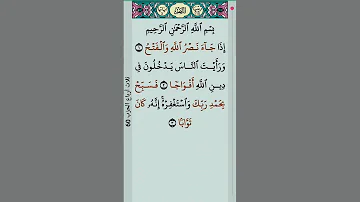 النصر
بِسْمِ ٱللَّهِ ٱلرَّحْمَٰنِ ٱلرَّحِيمِ
إِذَا جَآءَ نَصْرُ ٱللَّهِ وَٱلْفَتْحُ ۝١
وَرَأَيْتَ ٱلنَّاسَ يَدْخُلُونَ فِى
دِينِ ٱللَّهِ أَفْوَاجًا ۝٢ فَسَبِّحْ
بِحَمْدِ رَبِّكَ وَٱسْتَغْفِرْهُ إِنَّهُۥ كَانَ
تَوَّابًۢا ۝٣
ثلاث أرباع الحزب 60